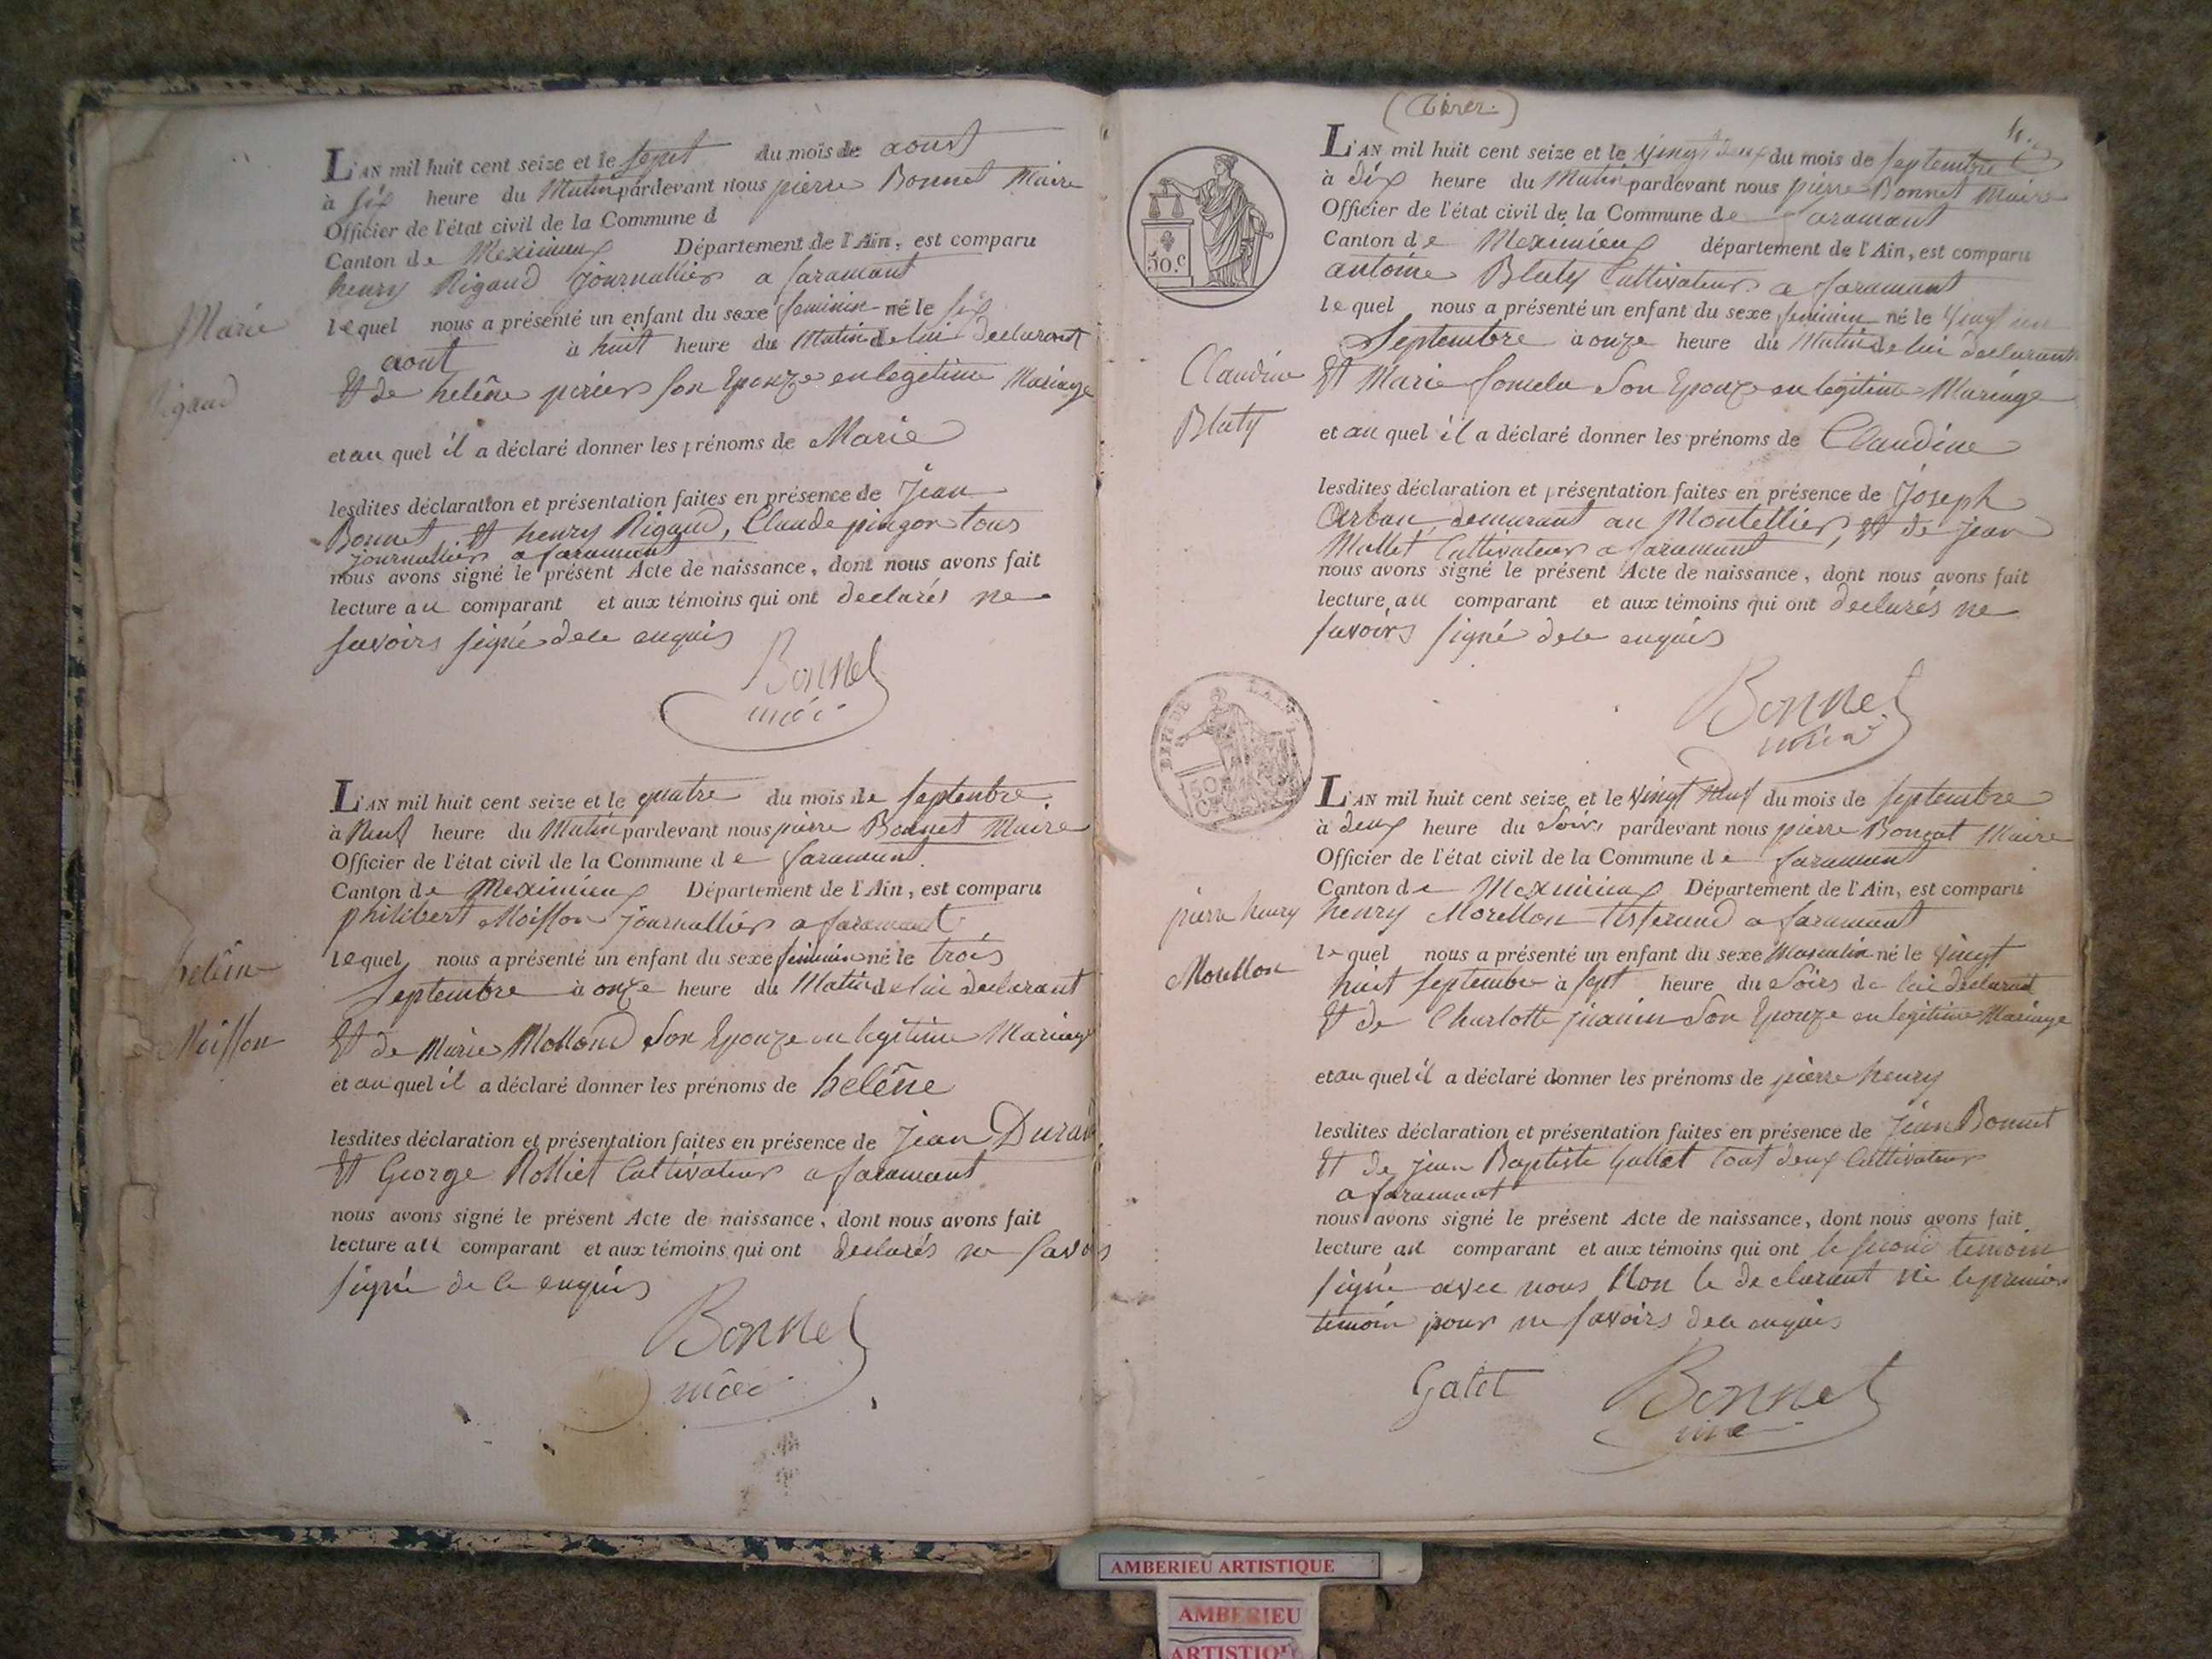 Marie
Rigaud
L'AN mil huit cent seize et le sept du mois de aoust
à six heure du Matin pardevant nous pierre Bonnet Maire
Officier de l'état civil de la Commune d
Canton de Meximieux Département de l'Ain, est comparu
henry Rigaud journallier a faramant
lequel nous a présenté un enfant du sexe feminin né le six
aout à huit heure du Matin de lui declarant
Et de helêne perier son Epouze en legitime Mariage
et au quel il a déclaré donner les prénoms de Marie
lesdites déclaration et présentation faites en présence de Jean
Bonnet Et henry Rigaud, Claude pingon tous
journallier a faramant
nous avons signé le présent Acte de naissance, dont nous avons fait
lecture au comparant et aux témoins qui ont declarés ne
savoirs signé de ce enquis
Bonnet
helêne
Moisson
L'AN mil huit cent seize et le quatre du mois de septembre
à Neuf heure du Matin pardevant nous pierre Bonnet Maire
Officier de l'état civil de la Commune de faramant.
Canton de Meximieux Département de l'Ain, est comparu
philibert Moisson journallier a faramant
lequel nous a présenté un enfant du sexe feminin né le trois
Septembre à onze heure du Matin de lui declarant
Et de Marie Mollond Son Epouze en legitime Mariage
et au quel il a déclaré donner les prénoms de helêne
lesdites déclaration et présentation faites en présence de Jean Durand
Et George Rolliet Cultivateur a faramant
nous avons signé le présent Acte de naissance, dont nous avons fait
lecture au comparant et aux témoins qui ont declarés ne savoirs
signé de ce enquis
Bonnet
4.
50.c
Claudine
Bluty
L'AN mil huit cent seize et le Vingt deux du mois de septembre
à dix heure du Matin pardevant nous pierre Bonnet Maire
Officier de l'état civil de la Commune de faramant
Canton de Meximieux département de l'Ain, est comparu
antoine Bluty Cultivateur a faramant
lequel nous a présenté un enfant du sexe feminin né le Vingt un
Septembre à onze heure du Matin de lui declarant
Et Marie Son Epouze en legitime Mariage
et au quel il a déclaré donner les prénoms de Claudine
lesdites déclaration et présentation faites en présence de Joseph
Arban, demurant au Montellier, Et de jean
Mallet Cultivateur a faramant
nous avons signé le présent Acte de naissance, dont nous avons fait
lecture au comparant et aux témoins qui ont declarés ne
savoirs signé de ce enquis
Bonnet
pierre henry
Morellon
L'AN mil huit cent seize et le Vingt Neuf du mois de septembre
à deux heure du Soirs pardevant nous pierre Bonnet Maire
Officier de l'état civil de la Commune de faramant
Canton de Meximieux Département de l'Ain, est comparu
henry Morellon tisserand a faramant
lequel nous a présenté un enfant du sexe Masculin né le vingt
huit septembre à sept heure du Soirs de lui declarant
Et de Charlotte juanin Son Epouze en legitime Mariage
et au quel il a déclaré donner les prénoms de pierre henry
lesdites déclaration et présentation faites en présence de Jean Bonnet
Et de jean Baptiste Gallet tout deux Cultivateur
a faramant
nous avons signé le présent Acte de naissance, dont nous avons fait
lecture au comparant et aux témoins qui ont le second temoin
signé avec nous Non le declarant ni le premier
temoin pour ne savoirs de ce enquis
Galet Bonnet
AMBERIEU ARTISTIQUE
AMBERIEU
ARTISTIQUE